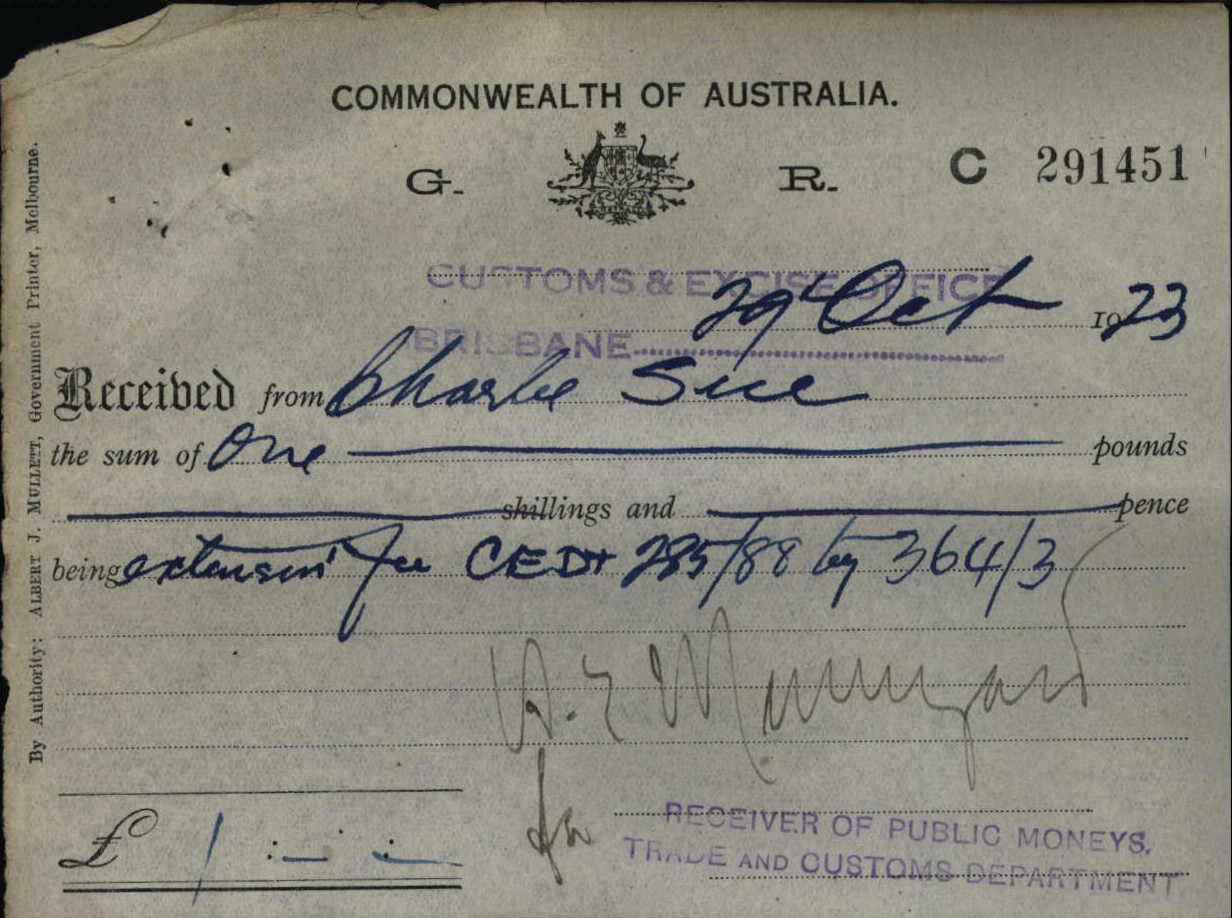 COMMONWEALTH OF AUSTRALIA.
G. R. C 291451
CUSTOMS & EXCISE OFFICE
29th Oct 1923
BRISBANE
Received from Charlie Sue
the sum of One pounds
shillings and pence
being extension fee CEDT 285/88 by 364/3
for
£ 1 : - : -
RECEIVER OF PUBLIC MONEYS.
TRADE AND CUSTOMS DEPARTMENT
By Authority: ALBERT J. MULLETT, Government Printer, Melbourne.